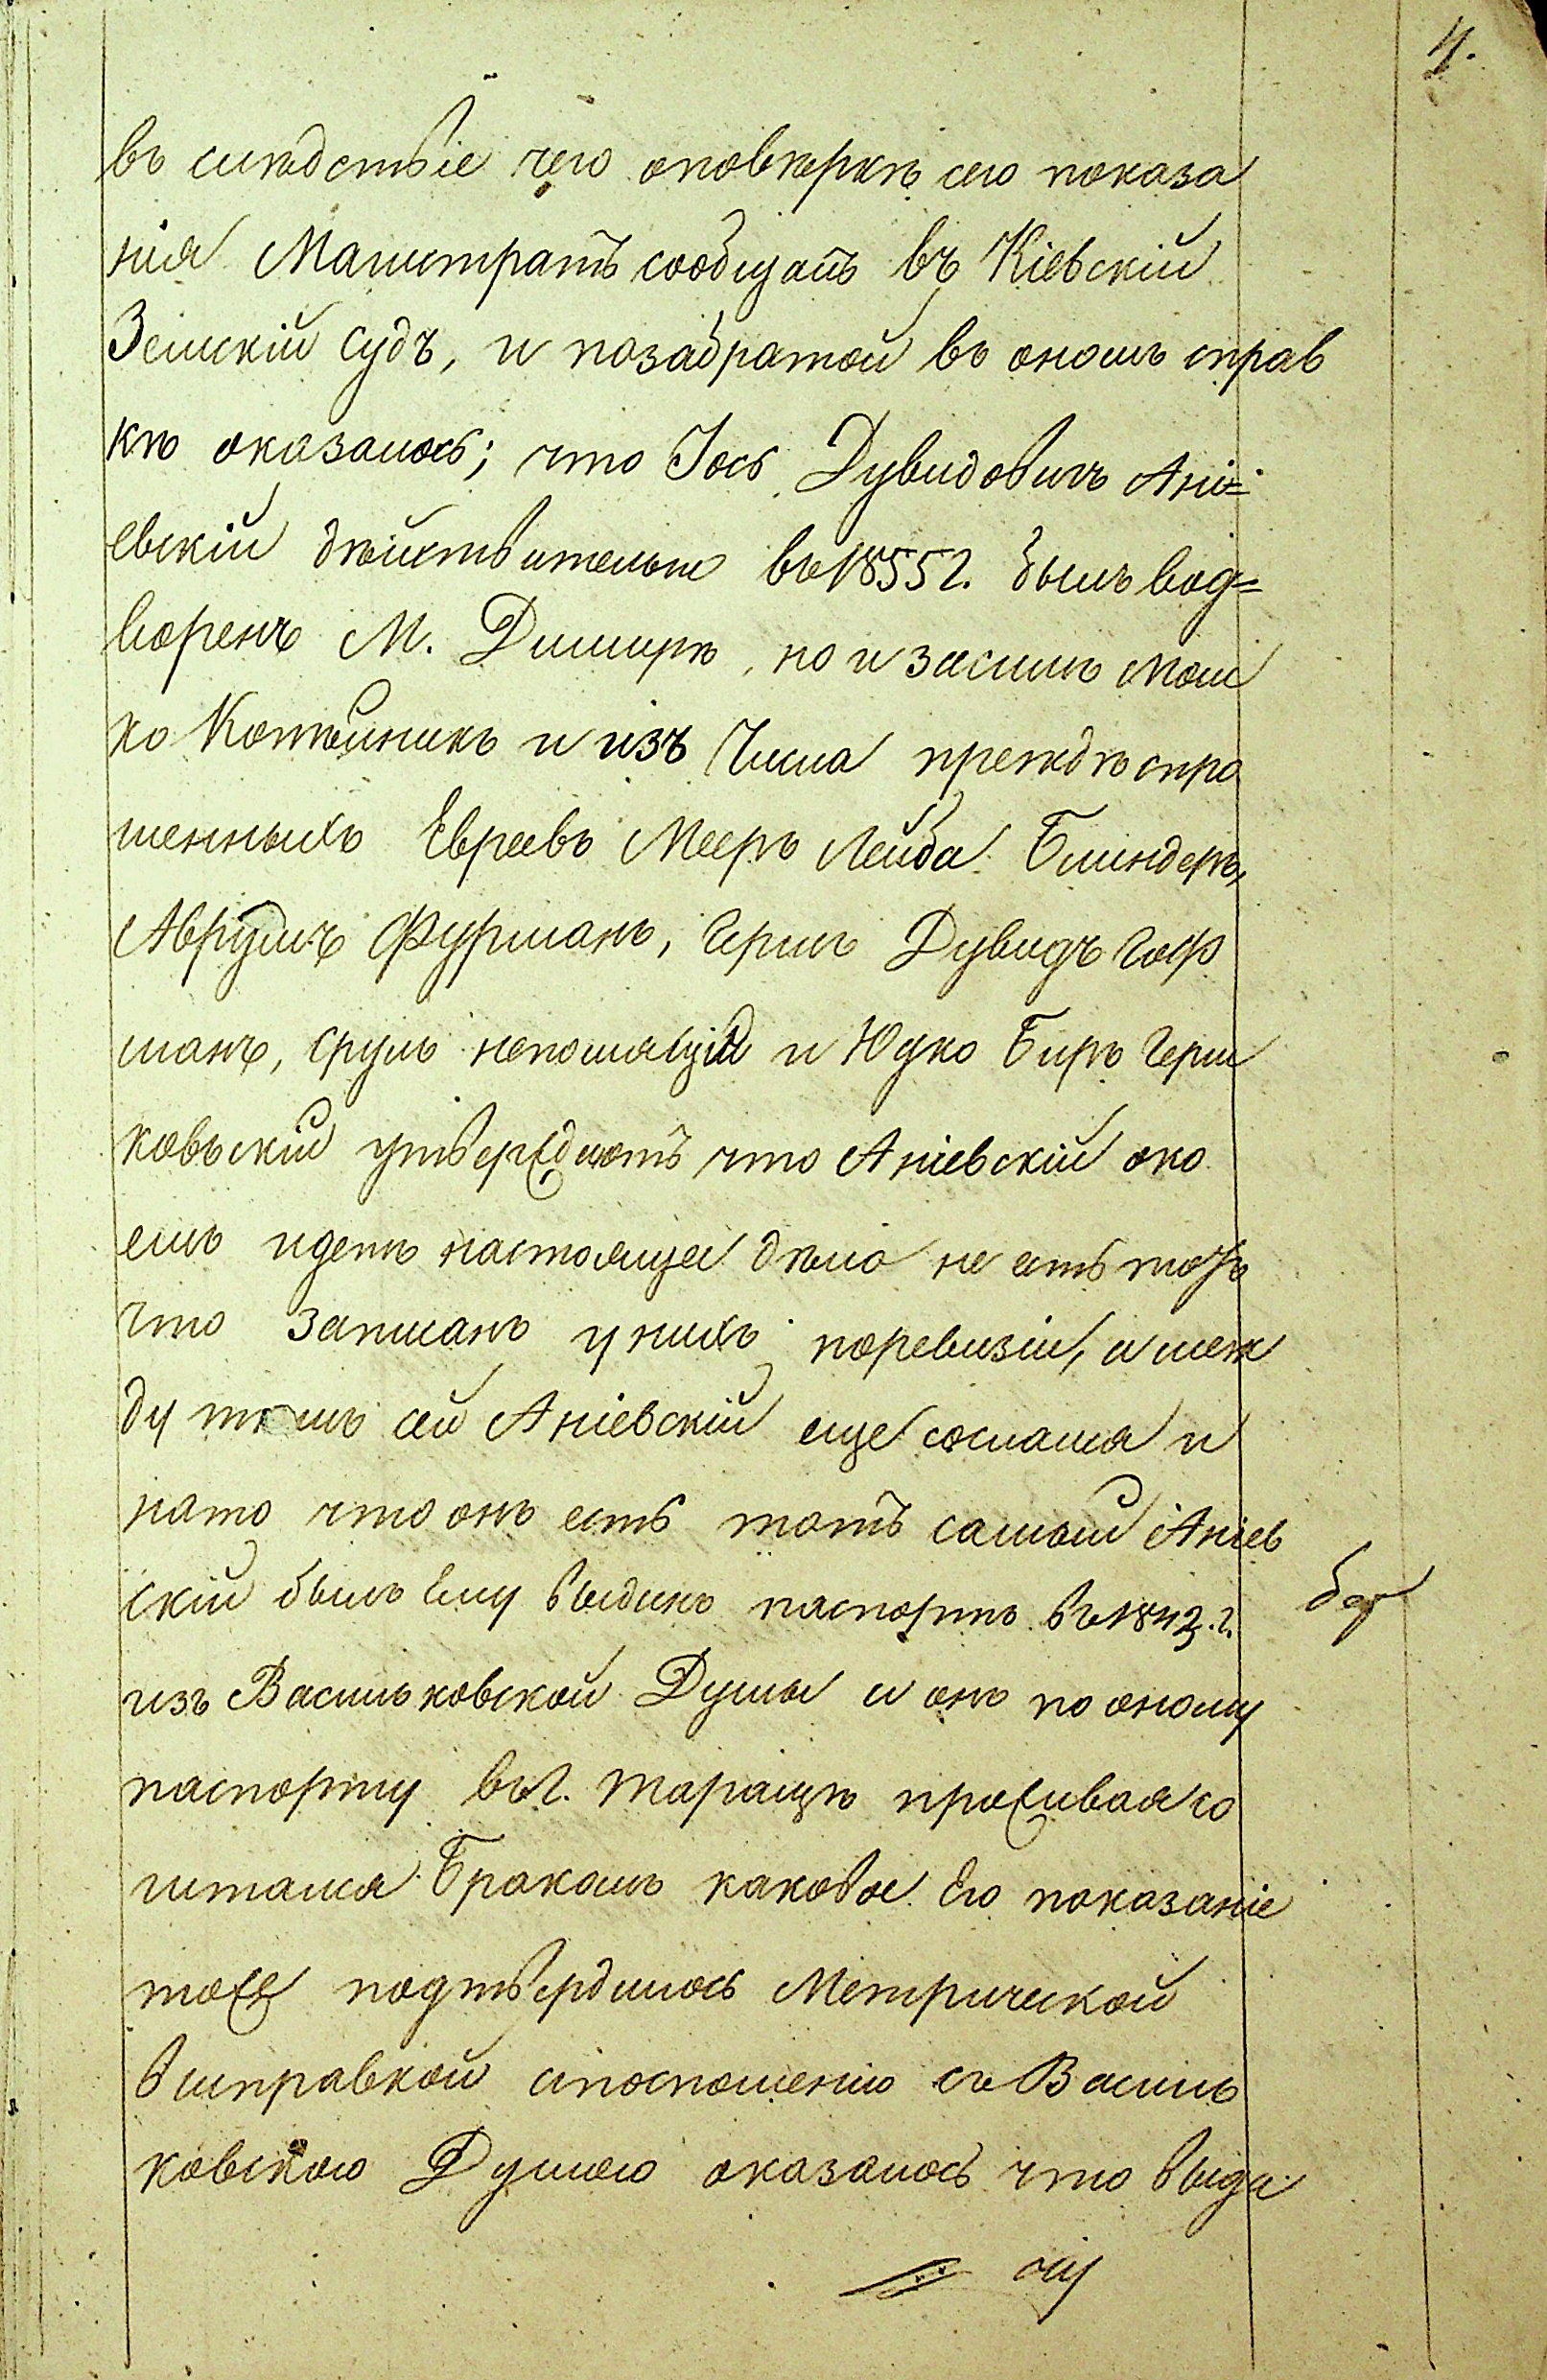 4.
въ слѣдствіе чего оповѣркѣ сего показа
нія Магистратъ сообщатъ въ Кіевскій
Земскій Судъ, и позабратой въ ономъ справ
кѣ оказалось; что Іось Дувидовичъ Ані=
евскій дѣйствительно въ 1855 г. былъ вод=
воренъ М. Димирѣ, но и засимъ Мош
ко Котлѣйникъ и изъ Числа преждѣ спро
шенныхъ Евреевъ Мееръ Лейба Блиндеръ,
Аврумъ Фурманъ, Гершъ Дувидъ Гоф
манъ, Сруль непомлящій и Юдко Биръ Герш
ковъскій утверждаютъ что Аніевскій око
емъ идетъ настоящее дѣло не есть тотъ
что записанъ у нихъ поревизіи, и меж
ду тѣмъ сей Аніевскій еще сослался и
нато что онъ есть тотъ самый Аніев
скій былъ Ему выданъ паспортъ въ 1843. г.
изъ Васильковской Думы и онъ по оному
паспорту въ г. Таращѣ проживая со
читался Бракомъ каковое Его показаніе
тоже подтвердилось Метрической
выправкой ипосношенію съ Василь
ковскою Думою оказалось что выда